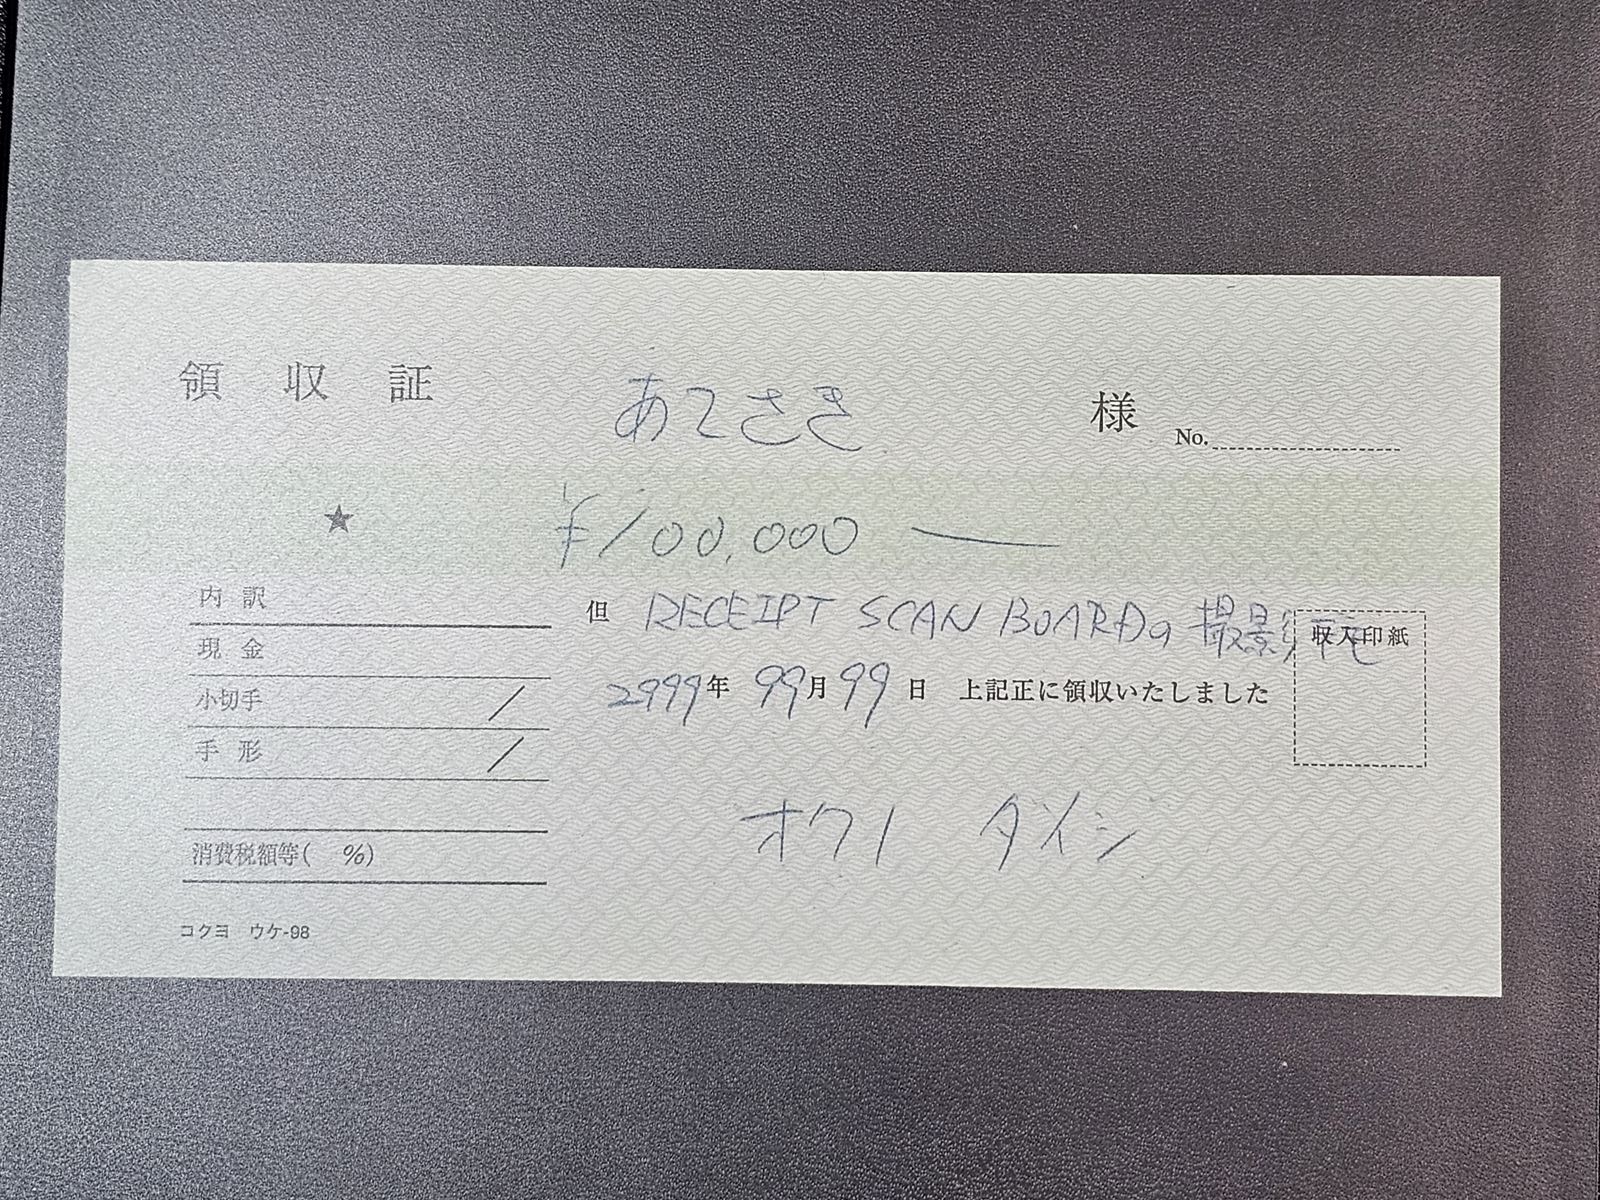 領収証 あてさき 様 No.
★ ¥100,000 —
内訳
但 RECEIPT SCAN BOARDの撮影 収入印紙
現金
2999年 99月 99日 上記正に領収いたしました
小切手 /
手形 /
オクノ ダイシ
消費税額等( %)
コクヨ ウケ-98